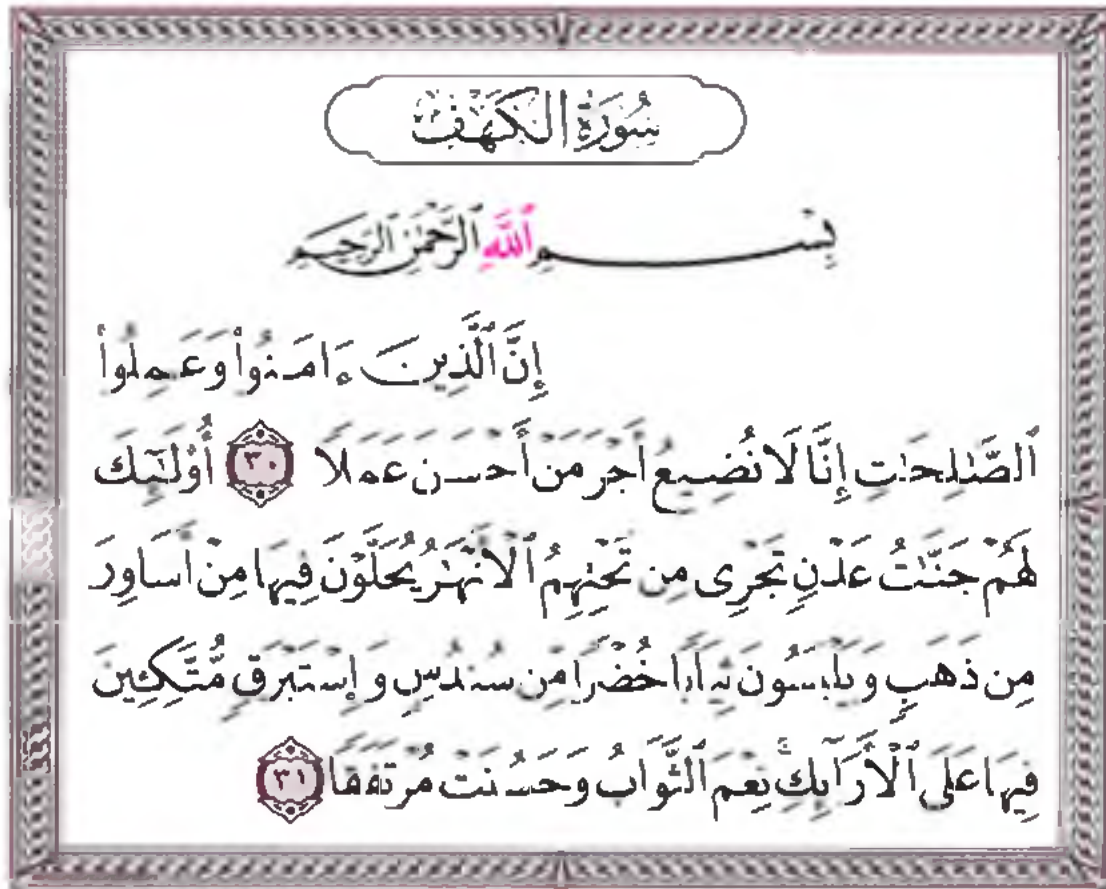 سُورَةُ الكَهْف
بِسْمِ ٱللَّهِ ٱلرَّحْمَٰنِ ٱلرَّحِيمِ
إِنَّ ٱلَّذِينَ ءَامَنُوا۟ وَعَمِلُوا۟
ٱلصَّٰلِحَٰتِ إِنَّا لَا نُضِيعُ أَجْرَ مَنْ أَحْسَنَ عَمَلًا ٣٠ أُو۟لَٰٓئِكَ
لَهُمْ جَنَّٰتُ عَدْنٍ تَجْرِى مِن تَحْتِهِمُ ٱلْأَنْهَٰرُ يُحَلَّوْنَ فِيهَا مِنْ أَسَاوِرَ
مِن ذَهَبٍ وَيَلْبَسُونَ ثِيَابًا خُضْرًا مِّن سُندُسٍ وَإِسْتَبْرَقٍ مُّتَّكِـِٔينَ
فِيهَا عَلَى ٱلْأَرَآئِكِ ۚ نِعْمَ ٱلثَّوَابُ وَحَسُنَتْ مُرْتَفَقًا ٣١